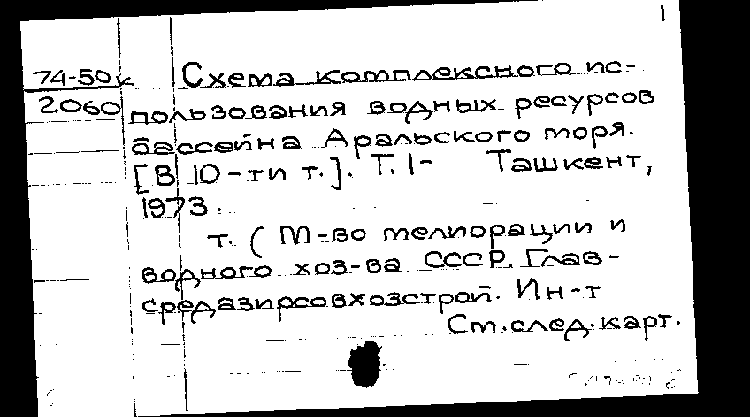 1
74-50к Схема комплексного ис-
2060 пользования водных ресурсов
бассейна Аральского моря.
[В 10-ти т.]. Т. 1- Ташкент,
1973.
т. ( М-во мелиорации и
водного хоз-ва СССР. Глав-
средазирсовхозстрой. Ин-т
См. след. карт.